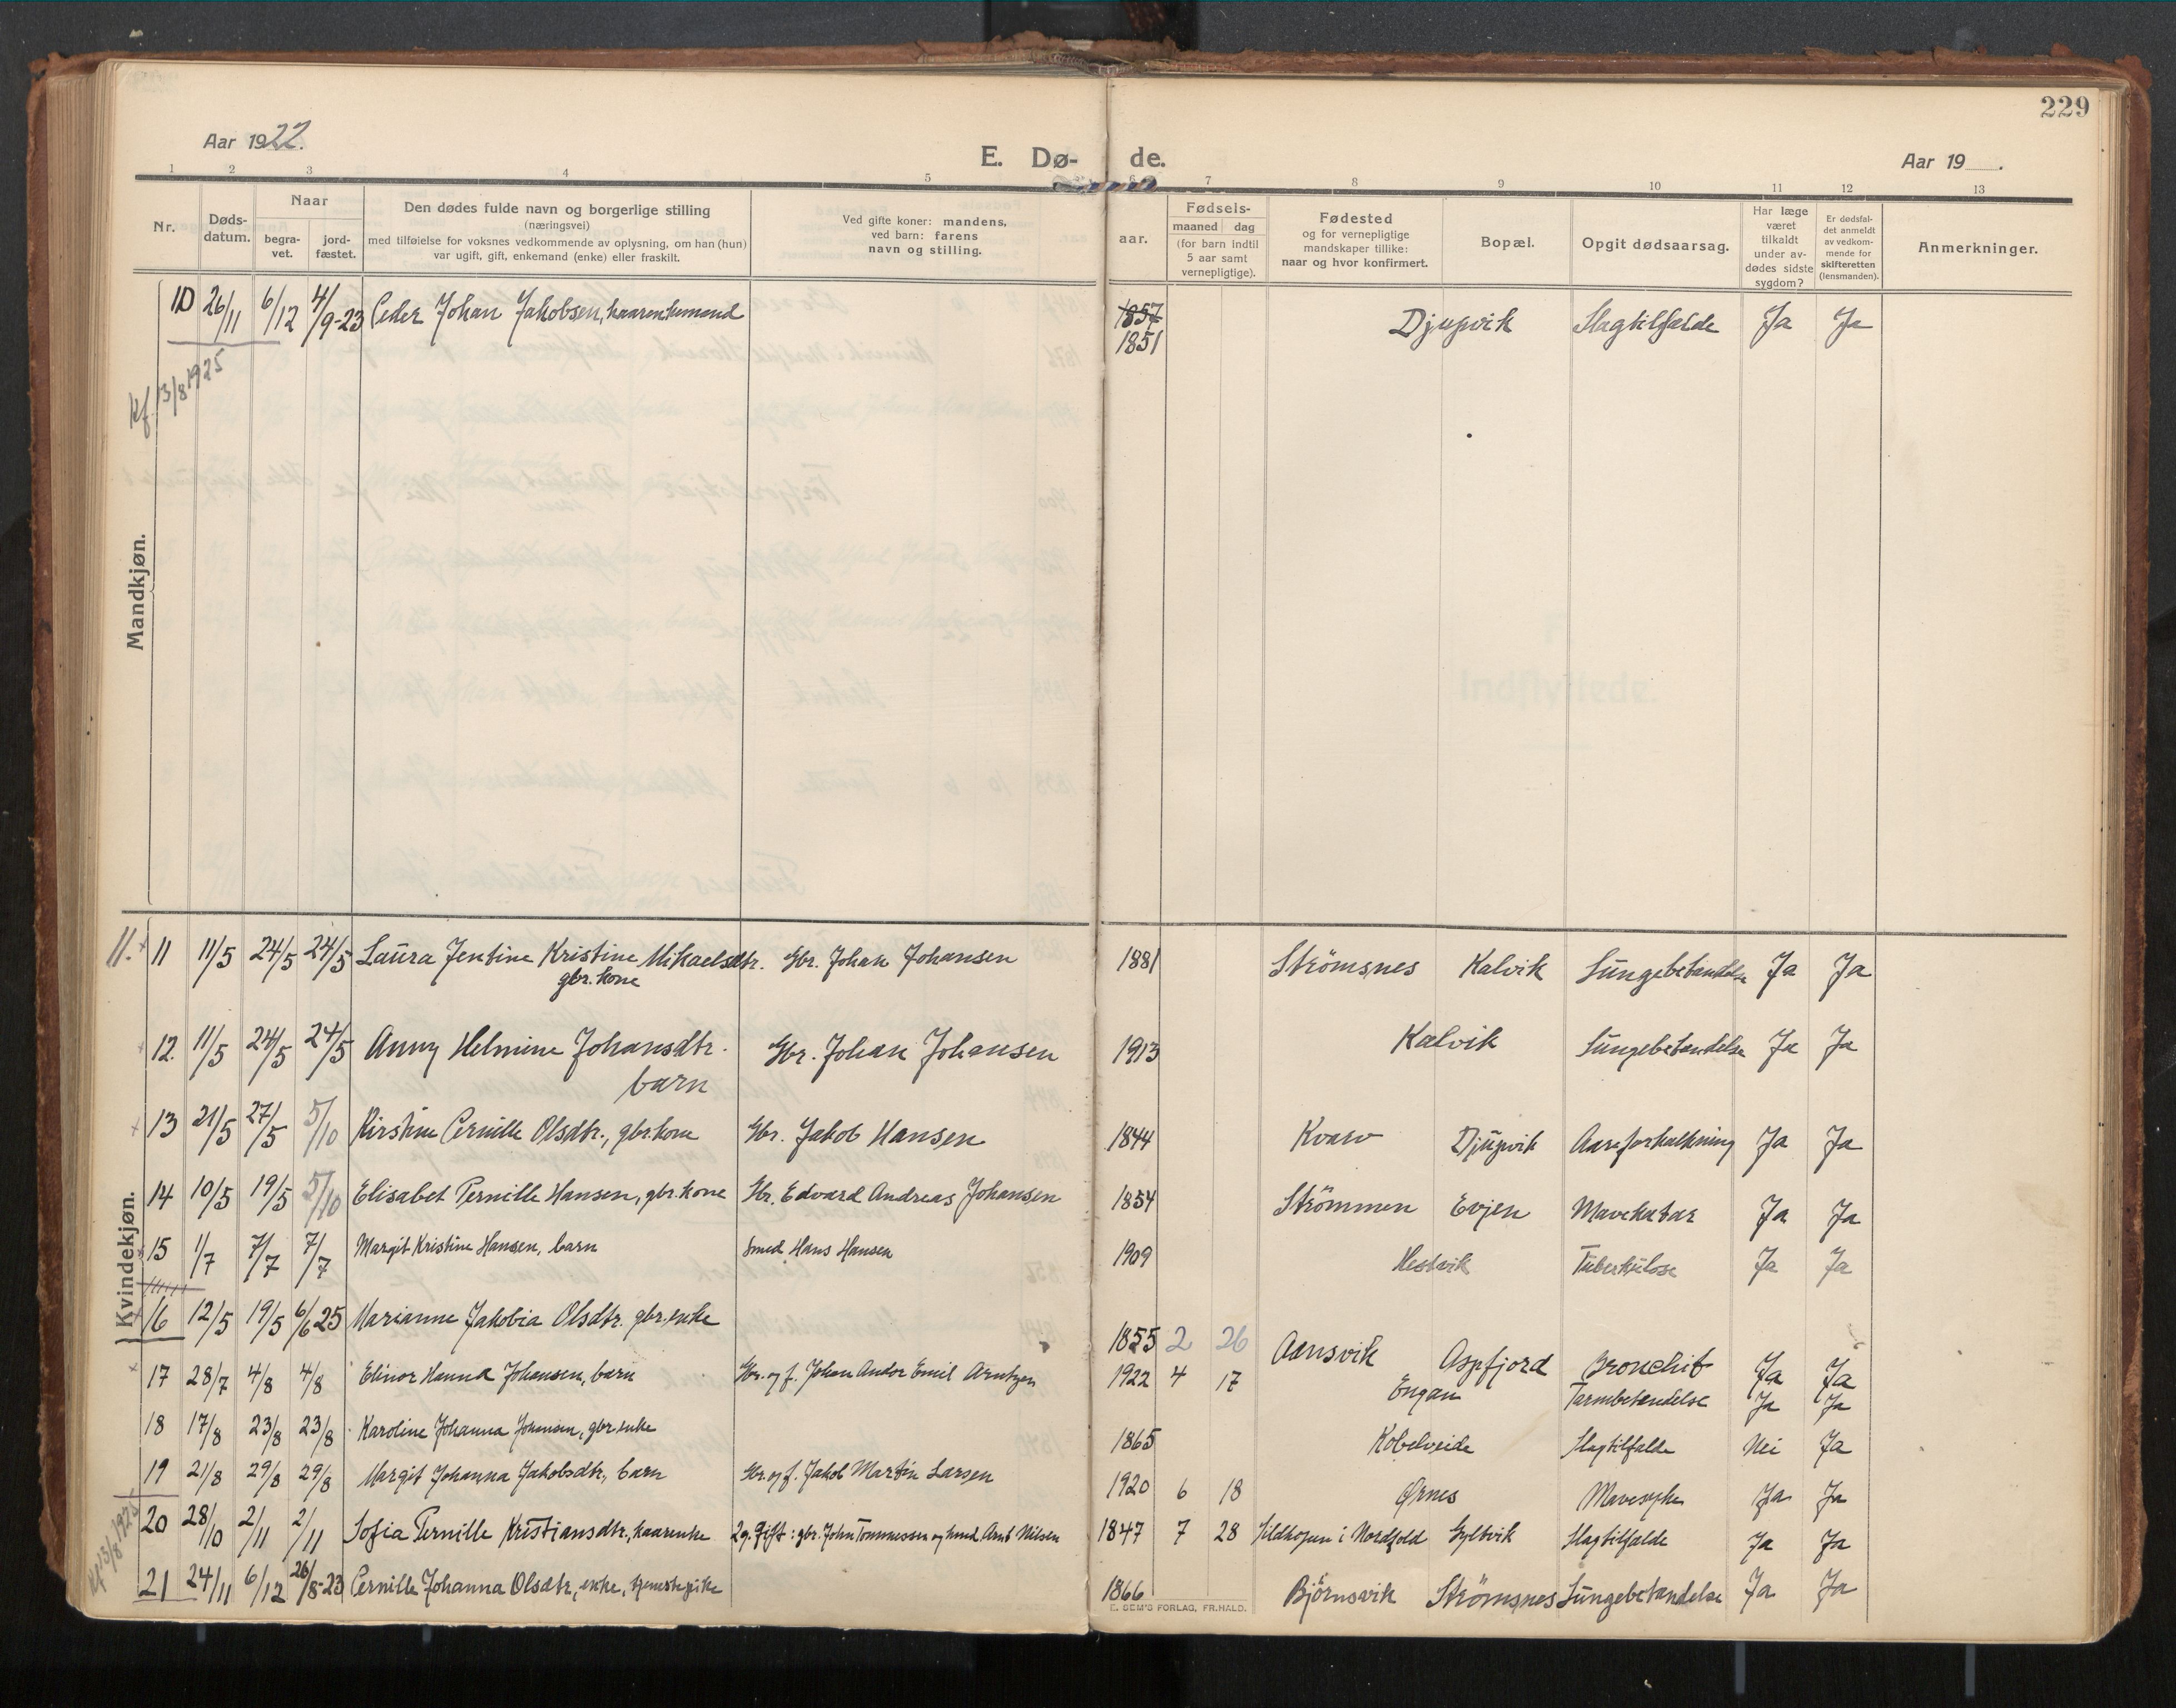 229
Aar 1922.
E. Dø- de.
Aar 19 .
1 2 3 4 5 6 7 8 9 10 11 12 13
Nr.
Døds-
datum.
Naar
begra-
vet.
jord-
fæstet.
Den dødes fulde navn og borgerlige stilling
(næringsvei)
med tilføielse for voksnes vedkommende av oplysning, om han (hun)
var ugift, gift, enkemand (enke) eller fraskilt.
Ved gifte koner: mandens,
ved barn: farens
navn og stilling.
aar.
Fødsels-
maaned dag
(for barn indtil
5 aar samt
vernepligtige).
Fødested
og for vernepligtige
mandskaper tillike:
naar og hvor konfirmert.
Bopæl.
Opgit dødsaarsag.
Har læge
været
tilkaldt
under av-
dødes sidste
sygdom?
Er dødsfal-
det anmeldt
av vedkom-
mende for
skifteretten
(lensmanden).
Anmerkninger.
Mandkjøn.
10 26/11 6/12 4/9-23 Peder Johan Jakobsen, kaarenkemand 1857 Djupvik Slagtilfælde Ja Ja
1851
Kf. 13/8 1925
Kvindekjøn.
11. + 11 11/5 24/5 24/5 Laura Jentine Kristine Mikaelsdtr. Gbr. Johan Johansen 1881 Strömsnes Kalvik Lungebetændelse Ja Ja
gbr. kone
12. 11/5 24/5 24/5 Anny Helmine Johansdtr. Gbr. Johan Johansen 1913 Kalvik Lungebetændelse Ja Ja
barn
+ 13 21/5 27/5 5/10 Kirstine Pernille Olsdtr., gbr.kone Gbr. Jakob Hansen 1844 Kvarv Djupvik Aareforkalkning Ja Ja
14 10/5 19/5 5/10 Elisabet Pernille Hansen, gbr. kone Gbr. Edvard Andreas Johansen 1854 Strömmen Evjen Mavekatar Ja Ja
15 1/7 7/7 7/7 Margit Kristine Hansen, barn Smed Hans Hansen 1909 Hestvik Tuberkulose Ja Ja
16 12/5 19/5 6/6 25 Marianne Jakobia Olsdtr. gbr. enke 1855 2 26 Aansvik Aspfjord Bronchit Ja Ja
+ 17 28/7 4/8 4/8 Elinor Hanna Johansen, barn Gbr. og f. Johan Andor Emil Arntzen 1922 4 17 Engan Tarmbetændelse Ja Ja
18 17/8 23/8 23/8 Karoline Johanna Johansen, gbr. enke 1865 Kobelveide Slagtilfælde Nei Ja
19 21/8 29/8 29/8 Margit Johanna Jakobsdtr., barn Gbr. og f. Jakob Martin Larsen 1920 6 18 Ørnes Mavesyke Ja Ja
20 28/10 2/11 2/11 Sofia Pernille Kristiansdtr., kaarenke 2 g. gift: gbr. John Tommessen og hmd. Arnt Nilsen 1847 7 28 Sildhopen i Nordfold Gyltvik Slagtilfælde Ja Ja
21 24/11 6/12 26/8-23 Pernille Johanna Olsdtr., enke, tjenestepike 1866 Björnsvik Strömsnes Lungebetændelse Ja Ja
Kf. 13/8 1925
E. SEM'S FORLAG, FR.HALD.